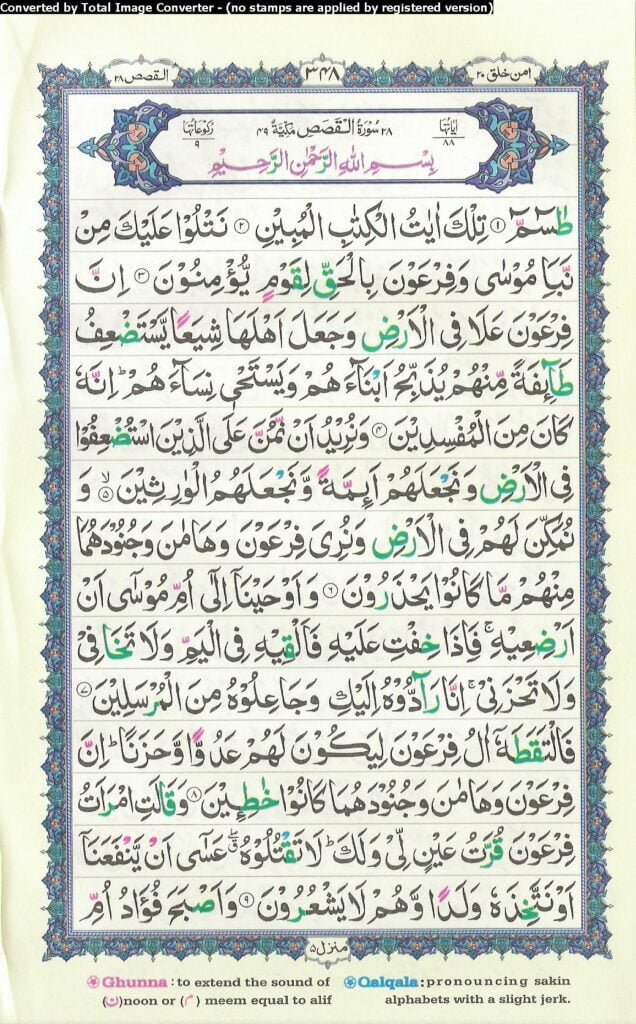 Converted by Total Image Converter - (no stamps are applied by registered version)
امن خلق ٢٠
٣٤٨
القصص ٢٨
اٰيَاتُهَا ٨٨
٢٨ سُوْرَةُ الْقَصَصِ مَكِّيَّةٌ ٤٩
رُكُوْعَاتُهَا ٩
بِسْمِ اللهِ الرَّحْمٰنِ الرَّحِيْمِ
طٰسٓمّٓ ۝١ تِلْكَ اٰيٰتُ الْكِتٰبِ الْمُبِيْنِ ۝٢ نَتْلُوْا عَلَيْكَ مِنْ
نَّبَاِ مُوْسٰى وَفِرْعَوْنَ بِالْحَقِّ لِقَوْمٍ يُّؤْمِنُوْنَ ۝٣ اِنَّ
فِرْعَوْنَ عَلَا فِى الْاَرْضِ وَجَعَلَ اَهْلَهَا شِيَعًا يَّسْتَضْعِفُ
طَآئِفَةً مِّنْهُمْ يُذَبِّحُ اَبْنَآءَهُمْ وَيَسْتَحْىٖ نِسَآءَهُمْ ؕ اِنَّهٗ
كَانَ مِنَ الْمُفْسِدِيْنَ ۝٤ وَنُرِيْدُ اَنْ نَّمُنَّ عَلَى الَّذِيْنَ اسْتُضْعِفُوْا
فِى الْاَرْضِ وَنَجْعَلَهُمْ اَئِمَّةً وَّنَجْعَلَهُمُ الْوٰرِثِيْنَ ۝٥ۙ وَ
نُمَكِّنَ لَهُمْ فِى الْاَرْضِ وَنُرِىَ فِرْعَوْنَ وَهَامٰنَ وَجُنُوْدَهُمَا
مِنْهُمْ مَّا كَانُوْا يَحْذَرُوْنَ ۝٦ وَاَوْحَيْنَآ اِلٰٓى اُمِّ مُوْسٰٓى اَنْ
اَرْضِعِيْهِ ۚ فَاِذَا خِفْتِ عَلَيْهِ فَاَلْقِيْهِ فِى الْيَمِّ وَلَا تَخَافِىْ
وَلَا تَحْزَنِىْ ۚ اِنَّا رَآدُّوْهُ اِلَيْكِ وَجَاعِلُوْهُ مِنَ الْمُرْسَلِيْنَ ۝٧
فَالْتَقَطَهٗٓ اٰلُ فِرْعَوْنَ لِيَكُوْنَ لَهُمْ عَدُوًّا وَّحَزَنًا ؕ اِنَّ
فِرْعَوْنَ وَهَامٰنَ وَجُنُوْدَهُمَا كَانُوْا خٰطِـِٕيْنَ ۝٨ وَقَالَتِ امْرَاَتُ
فِرْعَوْنَ قُرَّتُ عَيْنٍ لِّىْ وَلَكَ ؕ لَا تَقْتُلُوْهُ ۖ ق عَسٰٓى اَنْ يَّنْفَعَنَآ
اَوْ نَتَّخِذَهٗ وَلَدًا وَّهُمْ لَا يَشْعُرُوْنَ ۝٩ وَاَصْبَحَ فُؤَادُ اُمِّ
منزل ٥
Ghunna : to extend the sound of Qalqala : pronouncing sakin
(ن) noon or (م) meem equal to alif alphabets with a slight jerk.